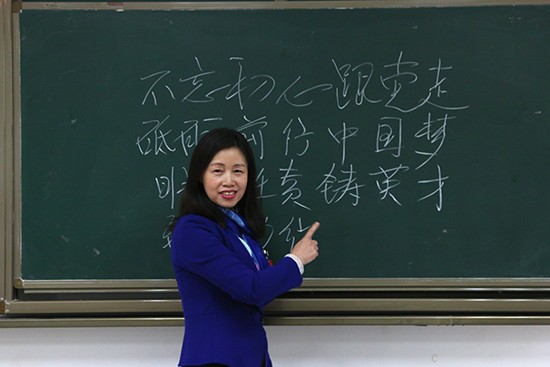 不忘初心跟党走
砥砺前行中国梦
责铸英才